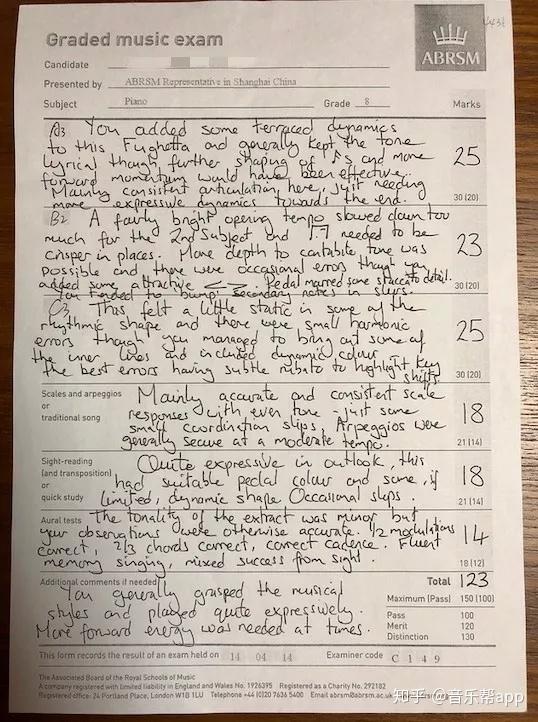 Graded music exam
ABRSM
Candidate
Presented by ABRSM Representative in Shanghai China
Subject Piano Grade 8 Marks
A3 You added some terraced dynamics
to this Fughetta and generally kept the tone
lyrical though further shaping of and more
forward momentum would have been effective.
Mainly consistent articulation, here, just needing
more expressive dynamics towards the end.
25
30 (20)
B2 A fairly bright opening tempo slowed down too
much for the 2nd Subject and needed to be
crisper in places. More depth to cantabile tone was
possible and there were occasional errors though you
added some attractive < >. Pedal marred some staccato detail.
You tended to 'bump' secondary notes in slurs.
23
30 (20)
C3 This felt a little static in some of the
rhythmic shape and there were small harmonic
errors though you managed to bring out some of
the inner lines and included dynamic colour
the best errors having subtle rubato to highlight key
shifts.
25
30 (20)
Scales and arpeggios
or
traditional song
Mainly accurate and consistent scale
responses with even tone - just some
small coordination slips. Arpeggios were
generally secure at a moderate tempo.
18
21 (14)
Sight-reading
(and transposition)
or
quick study
Quite expressive in outlook, this
had suitable pedal colour and some, if
limited, dynamic shape Occasional slips.
18
21 (14)
Aural tests
The tonality of the extract was minor but
your observations were otherwise accurate. 1/2 modulations
correct, 2/3 chords correct, correct cadence. Fluent
memory singing, mixed success from sight.
14
18 (12)
Additional comments if needed
You generally grasped the musical
styles and played quite expressively.
More forward energy was needed at times.
Total 123
Maximum (Pass) 150 (100)
Pass 100
Merit 120
Distinction 130
This form records the result of an exam held on 14 04 14 Examiner code C 1 4 9
The Associated Board of the Royal Schools of Music
A company registered with limited liability in England and Wales No. 1926395 Registered as a Charity No. 292182
Registered office: 24 Portland Place, London W1B 1LU Telephone +44 (0)20 7636 5400 Email abrsm@abrsm.ac.uk
知乎 @音乐帮app